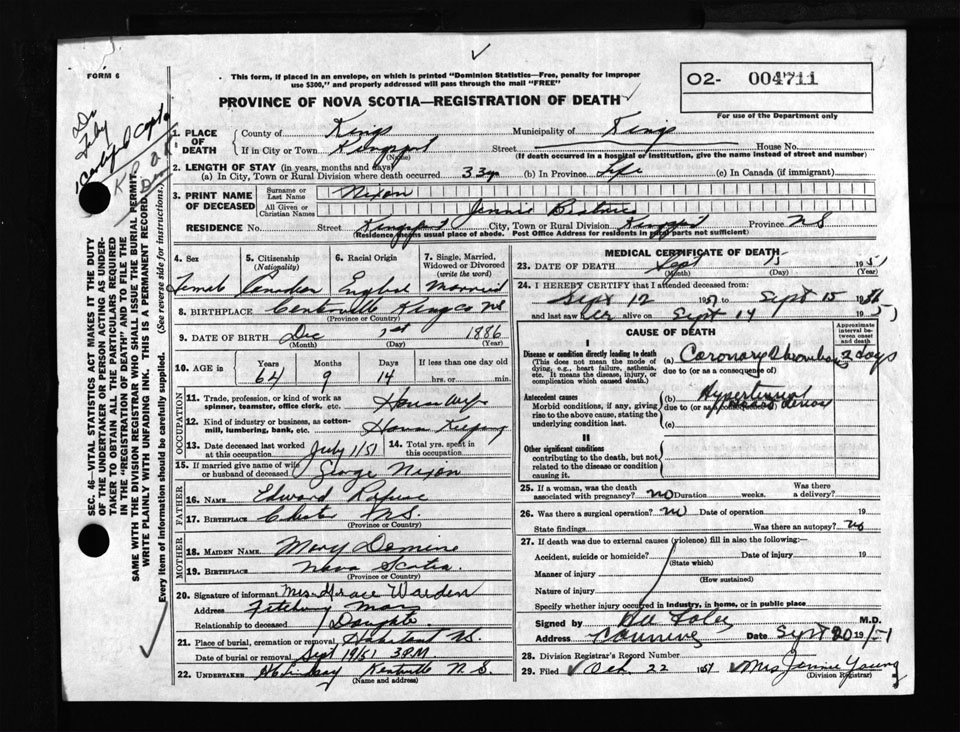 FORM 6
This form, if placed in an envelope, on which is printed "Dominion Statistics—Free, penalty for improper
use $300," and properly addressed will pass through the mail "FREE"
O2- 004711
For use of the Department only
PROVINCE OF NOVA SCOTIA—REGISTRATION OF DEATH
1. PLACE OF DEATH County of Kings Municipality of Kings
If in City or Town Kingsport (Name) Street House No.
(If death occurred in a hospital or institution, give the name instead of street and number)
2. LENGTH OF STAY (in years, months and days)
(a) In City, Town or Rural Division where death occurred 33 (b) In Province Life (c) In Canada (if immigrant)
3. PRINT NAME OF DECEASED Surname or Last Name Nixon
All Given or Christian Names Jennie Beatrice
RESIDENCE No. Street Kingsport City, Town or Rural Division Kingsport Province NS
(Residence means usual place of abode. Post Office Address for residents in rural parts not sufficient)
SEC. 46—VITAL STATISTICS ACT MAKES IT THE DUTY
OF THE UNDERTAKER OR PERSON ACTING AS UNDER-
TAKER TO OBTAIN ALL THE PARTICULARS REQUIRED
IN THE "REGISTRATION OF DEATH" AND TO FILE THE
SAME WITH THE DIVISION REGISTRAR WHO SHALL ISSUE THE BURIAL PERMIT.
WRITE PLAINLY WITH UNFADING INK. THIS IS A PERMANENT RECORD
Every item of information should be carefully supplied. (See reverse side for instructions.)
4. Sex
Female
5. Citizenship
(Nationality)
Canadian
6. Racial Origin
English
7. Single, Married,
Widowed or Divorced
(write the word)
Married
8. BIRTHPLACE Centreville Kings Co NS
(Province or Country)
9. DATE OF BIRTH Dec 1st 1886
(Month) (Day) (Year)
10. AGE Years Months Days If less than one day old
64 9 14 hrs. or min.
OCCUPATION
11. Trade, profession, or kind of work as
spinner, teamster, office clerk, etc. House Wife
12. Kind of industry or business, as cotton-
mill, lumbering, bank, etc. House Keeping
13. Date deceased last worked
at this occupation July 1/51
14. Total yrs. spent in
this occupation
15. If married give name of wife
or husband of deceased George Nixon
FATHER
16. NAME Edward Rafuse
17. BIRTHPLACE Chester N.S.
(Province or Country)
MOTHER
18. MAIDEN NAME Mary
19. BIRTHPLACE Nova Scotia
(Province or Country)
20. Signature of informant Mrs. Warden
Address Mass
Relationship to deceased Daughter
21. Place of burial, cremation or removal Habitant N.S.
Date of burial or removal Sept 19/51 3 P.M.
22. UNDERTAKER Kentville N.S.
(Name and address)
MEDICAL CERTIFICATE OF DEATH
23. DATE OF DEATH Sept 15 1951
(Month) (Day) (Year)
24. I HEREBY CERTIFY that I attended deceased from:
Sept 12 1951 to Sept 15 19
and last saw her alive on Sept 14 1951
CAUSE OF DEATH
Approximate
interval be-
tween onset
and death
I
Disease or condition directly leading to death
(This does not mean the mode of
dying, e.g., heart failure, asthenia,
etc. It means the disease, injury, or
complication which caused death.)
(a) Coronary Thrombosis 3 days
due to (or as a consequence of)
Antecedent causes
Morbid conditions, if any, giving
rise to the above cause, stating the
underlying condition last.
(b) Hypertension
due to (or as a consequence of)
(c)
II
Other significant conditions
contributing to the death, but not
related to the disease or condition
causing it.
25. If a woman, was the death
associated with pregnancy? no Duration weeks. Was there
a delivery?
26. Was there a surgical operation? no Date of operation 19
State findings Was there an autopsy? no
27. If death was due to external causes (violence) fill in also the following:—
Accident, suicide or homicide? Date of injury 19
(State which)
Manner of injury
(How sustained)
Nature of injury
Specify whether injury occurred in industry, in home, or in public place
Signed by Foley M.D.
Address Canning Date Sept 20 19 51
28. Division Registrar's Record Number
29. Filed Oct. 22 1951 Mrs Jennie Young
(Division Registrar)